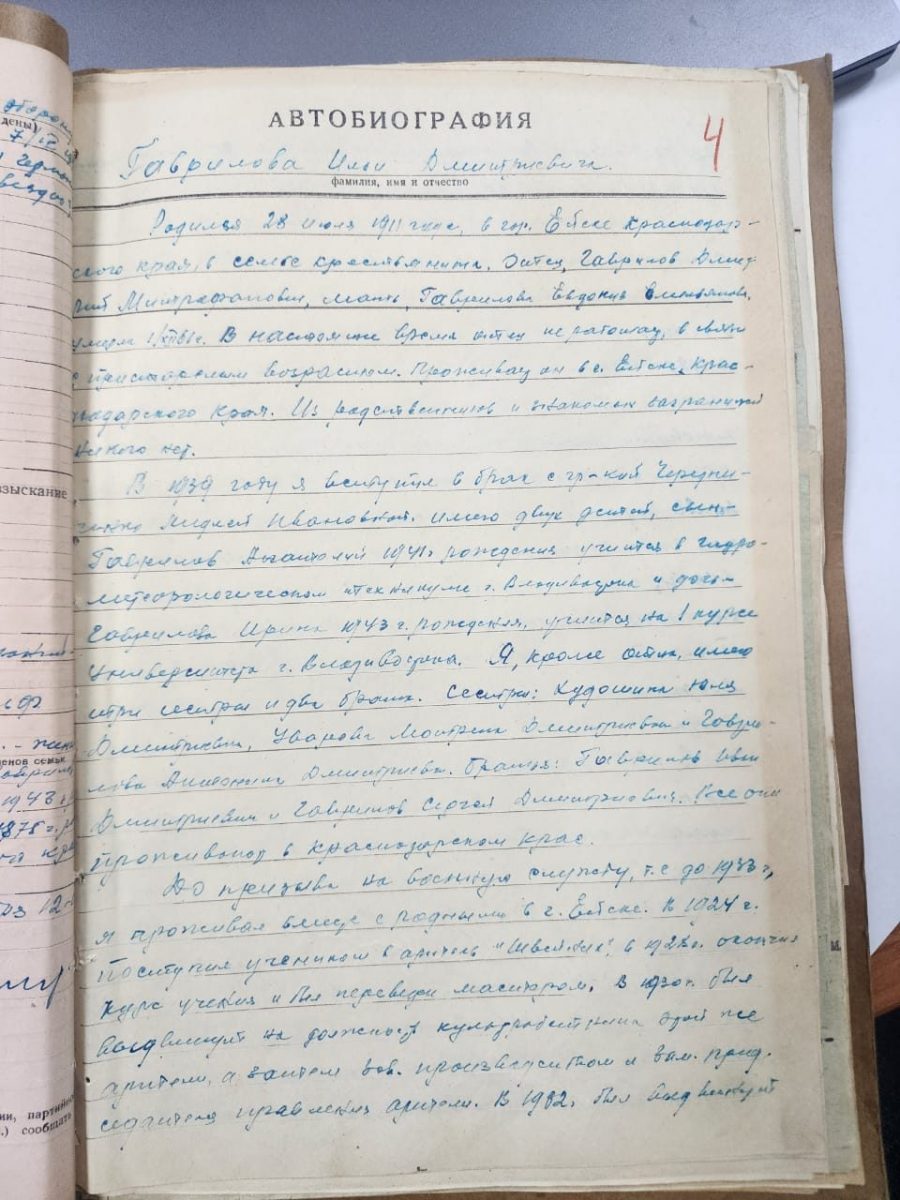 АВТОБИОГРАФИЯ
4
Гаврилова Ильи Дмитриевича.
фамилия, имя и отчество
Родился 28 июля 1911 года, в гор. Ейске Краснодар-
ского края, в семье крестьянина. Отец, Гаврилов Дмит-
рий Митрофанович, мать, Гаврилова Евдокия Емельяновна,
умерла В настоящее время отец не работает, в связи
с престарелым возрастом. Проживает он в г. Ейске, Крас-
нодарского края. Из родственников и знакомых заграницей
никого нет.
В 1939 году я вступил в брак с гр-кой
Лидией Ивановной. имею двух детей, сын-
Гаврилов Анатолий 1941г рождения учится в гидро-
метеорологическом техникуме г. Владивостока и дочь-
Гаврилова Ирина 1943 г. рождения, учится на 1 курсе
Университета г. Владивостока. Я, кроме отца, имею
три сестры и два брата. Сестры: Кудошина Юлия
Дмитриевна, Уварова Матрена Дмитриевна и Гаври-
лова Антонина Дмитриевна. Братья: Гаврилов Иван
Дмитриевич и Гаврилов Сергей Дмитриевич. Все они
проживают в Краснодарском крае.
До призыва на военную службу, т.е до 1933 г,
я проживал вместе с родными в г. Ейске. В 1924 г.
поступил учеником в артель "Швейник", в 1928г. окончил
курс учения и был переведен мастером. В 1930г. был
выдвинут на должность культработника этой же
артели, а затем зав. производством и зам. пред-
седателя правления артели. В 1932г. был выдвинут
дены)
7/IX
взыскание
членов семьи
1943
1875 г.
ии, партийно
.) сообщать